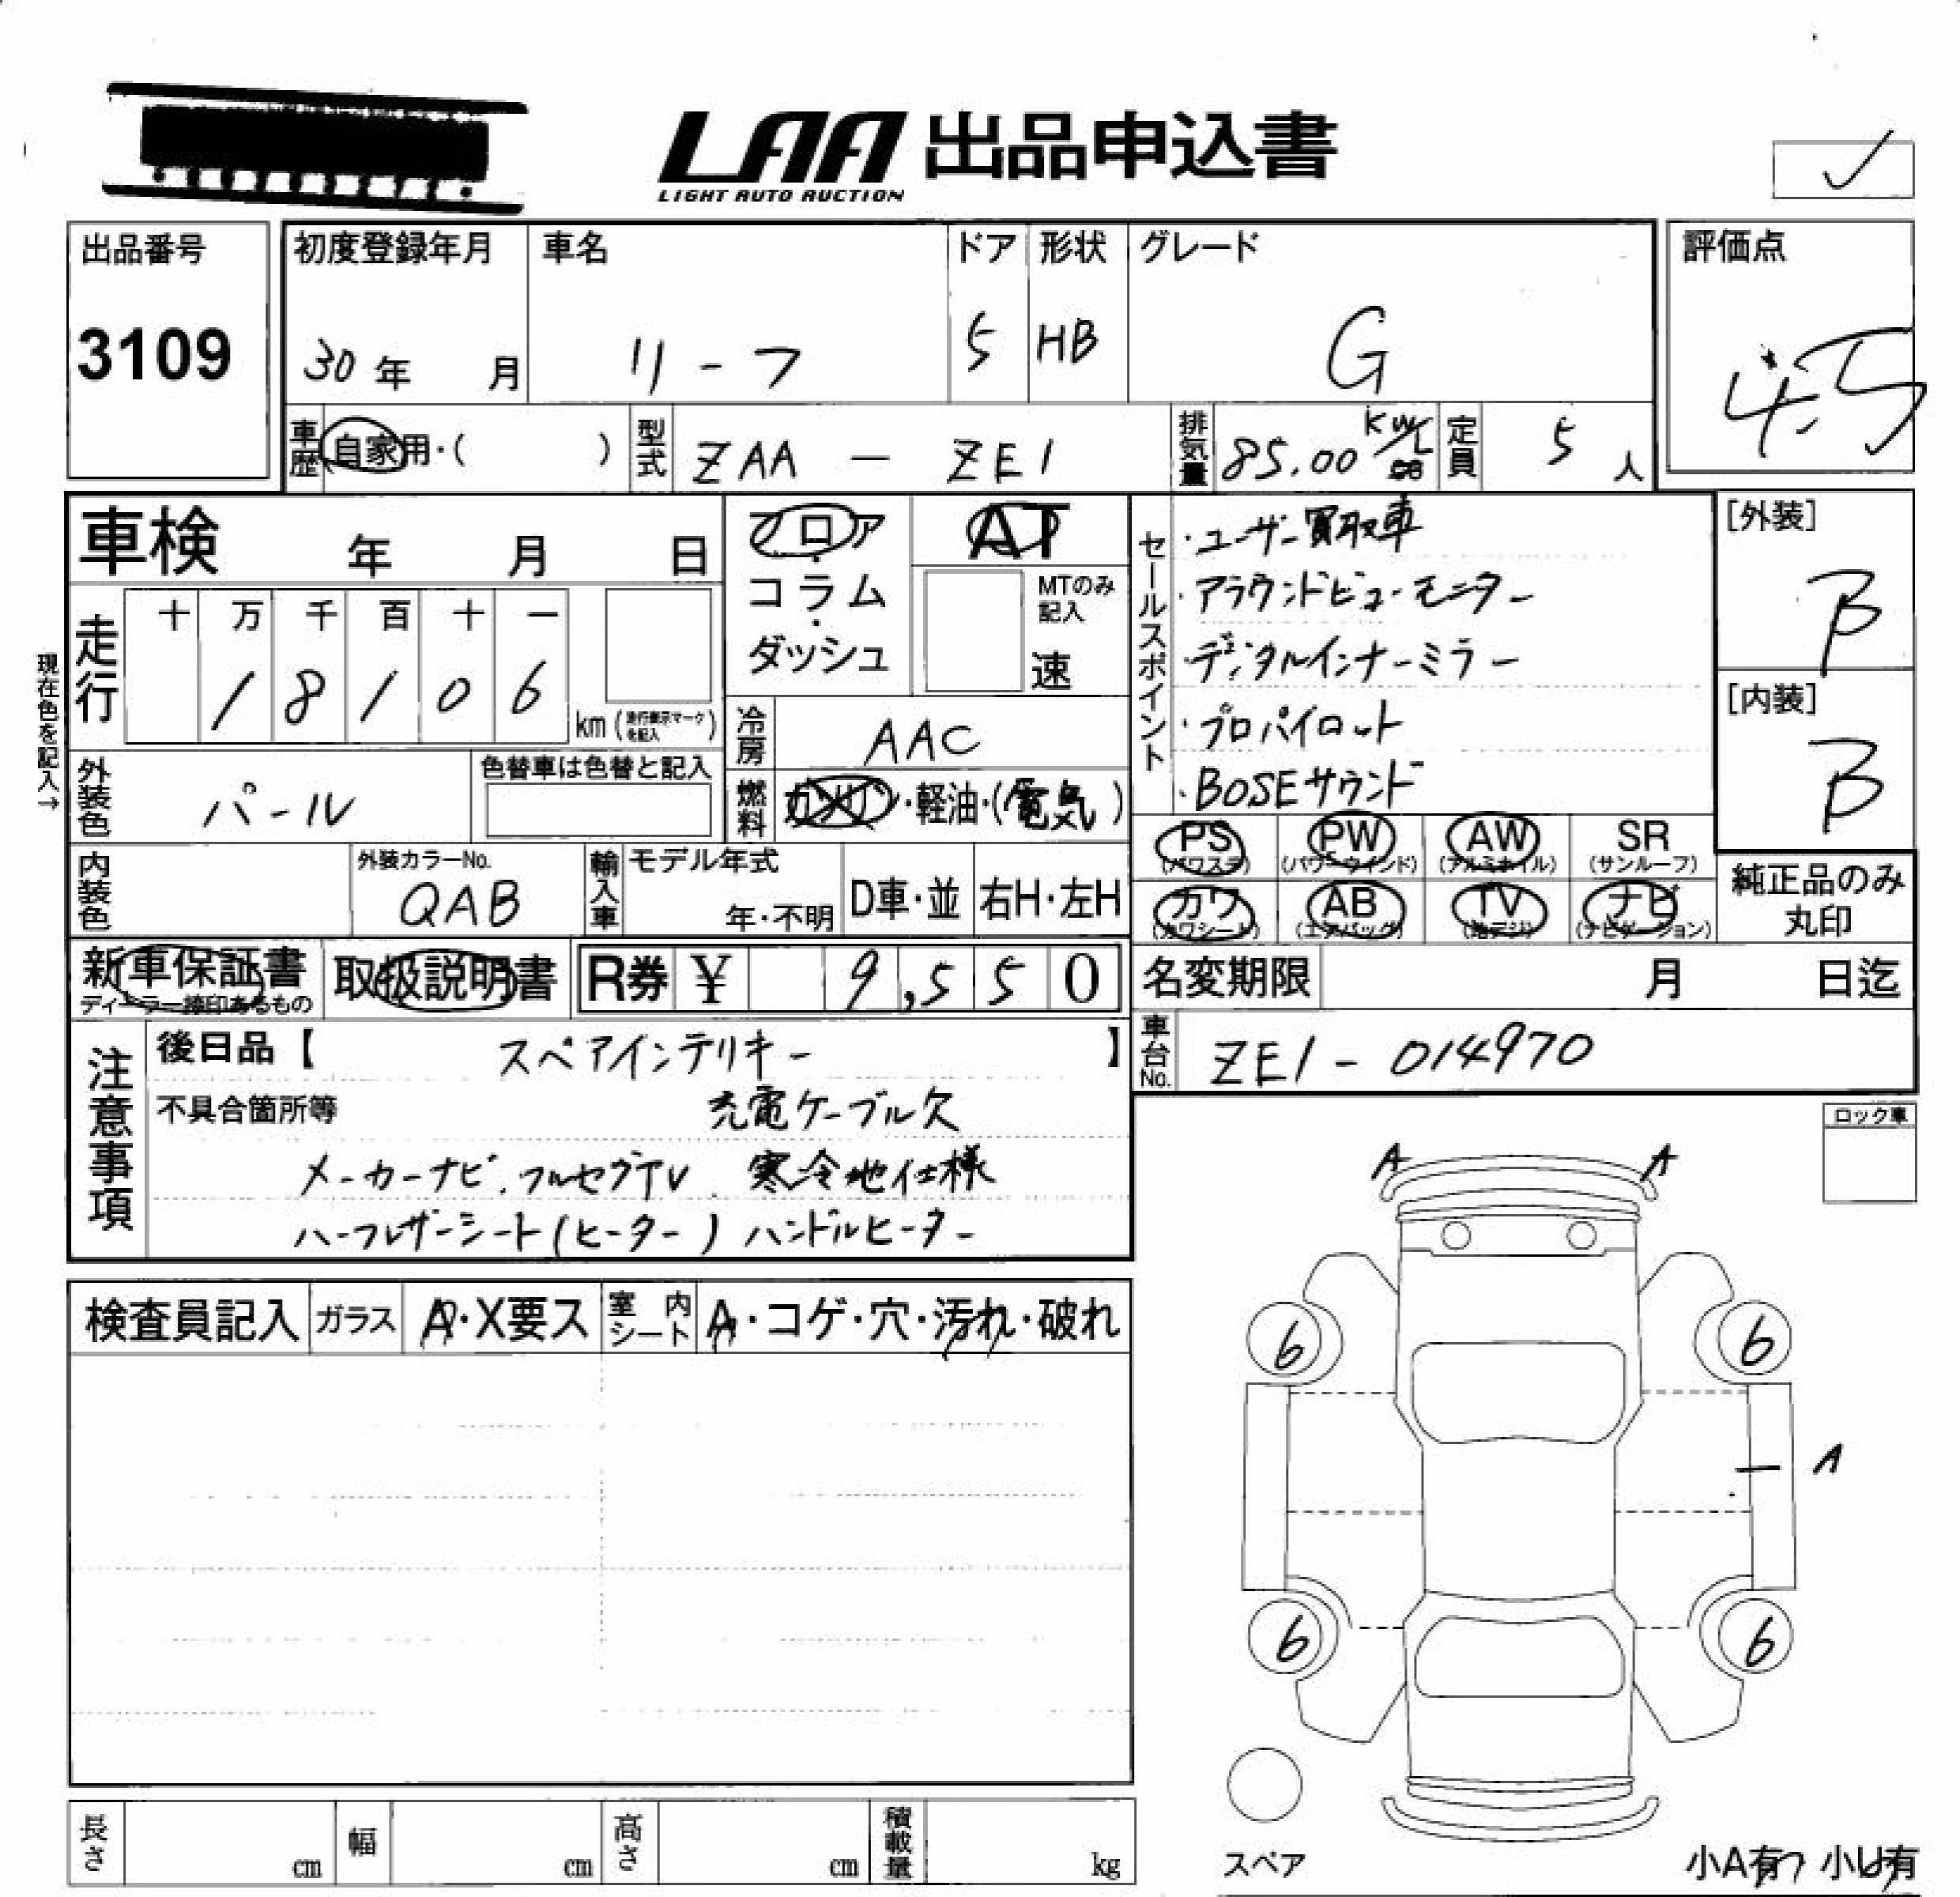 LAA 出品申込書
LIGHT AUTO AUCTION
出品番号
3109
初度登録年月
30年 月
車名
リーフ
ドア
5
形状
HB
グレード
G
評価点
4.5
車歴
自家用・( )
型式
ZAA - ZE1
排気量
85.00 kw/L
定員
5 人
車検 年 月 日
フロア・コラム・ダッシュ
AT
MTのみ記入
速
セールスポイント
・ユーザー買取車
・アラウンドビューモニター
・デジタルインナーミラー
・プロパイロット
・BOSEサウンド
[外装]
B
[内装]
B
現在色を記入→
走行
十 万 千 百 十 一
1 8 1 0 6
km (走行表示マークを記入)
冷房
AAC
外装色
パール
色替車は色替と記入
燃料
ガソリン・軽油・(電気)
PS (パワステ)
PW (パワーウインド)
AW (アルミホイル)
SR (サンルーフ)
カワ (カワシート)
AB (エアバッグ)
TV (地デジ)
ナビ (ナビゲーション)
純正品のみ丸印
内装色
外装カラーNo.
QAB
輸入車
モデル年式
年・不明
D車・並
右H・左H
新車保証書
ディーラー捺印あるもの
取扱説明書
R券 ¥ 9,550
名変期限 月 日迄
車台No.
ZE1-014970
注意事項
後日品【 スペアインテリキー 】
不具合箇所等 充電ケーブル欠
メーカーナビ.フルセグTV. 寒冷地仕様
ハーフレザーシート(ヒーター) ハンドルヒーター
ロック車
A A
検査員記入
ガラス
A・X要ス
室内シート
A・コゲ・穴・汚れ・破れ
6 6
A
6 6
スペア
小A有 小U有
長さ cm
幅 cm
高さ cm
積載量 kg